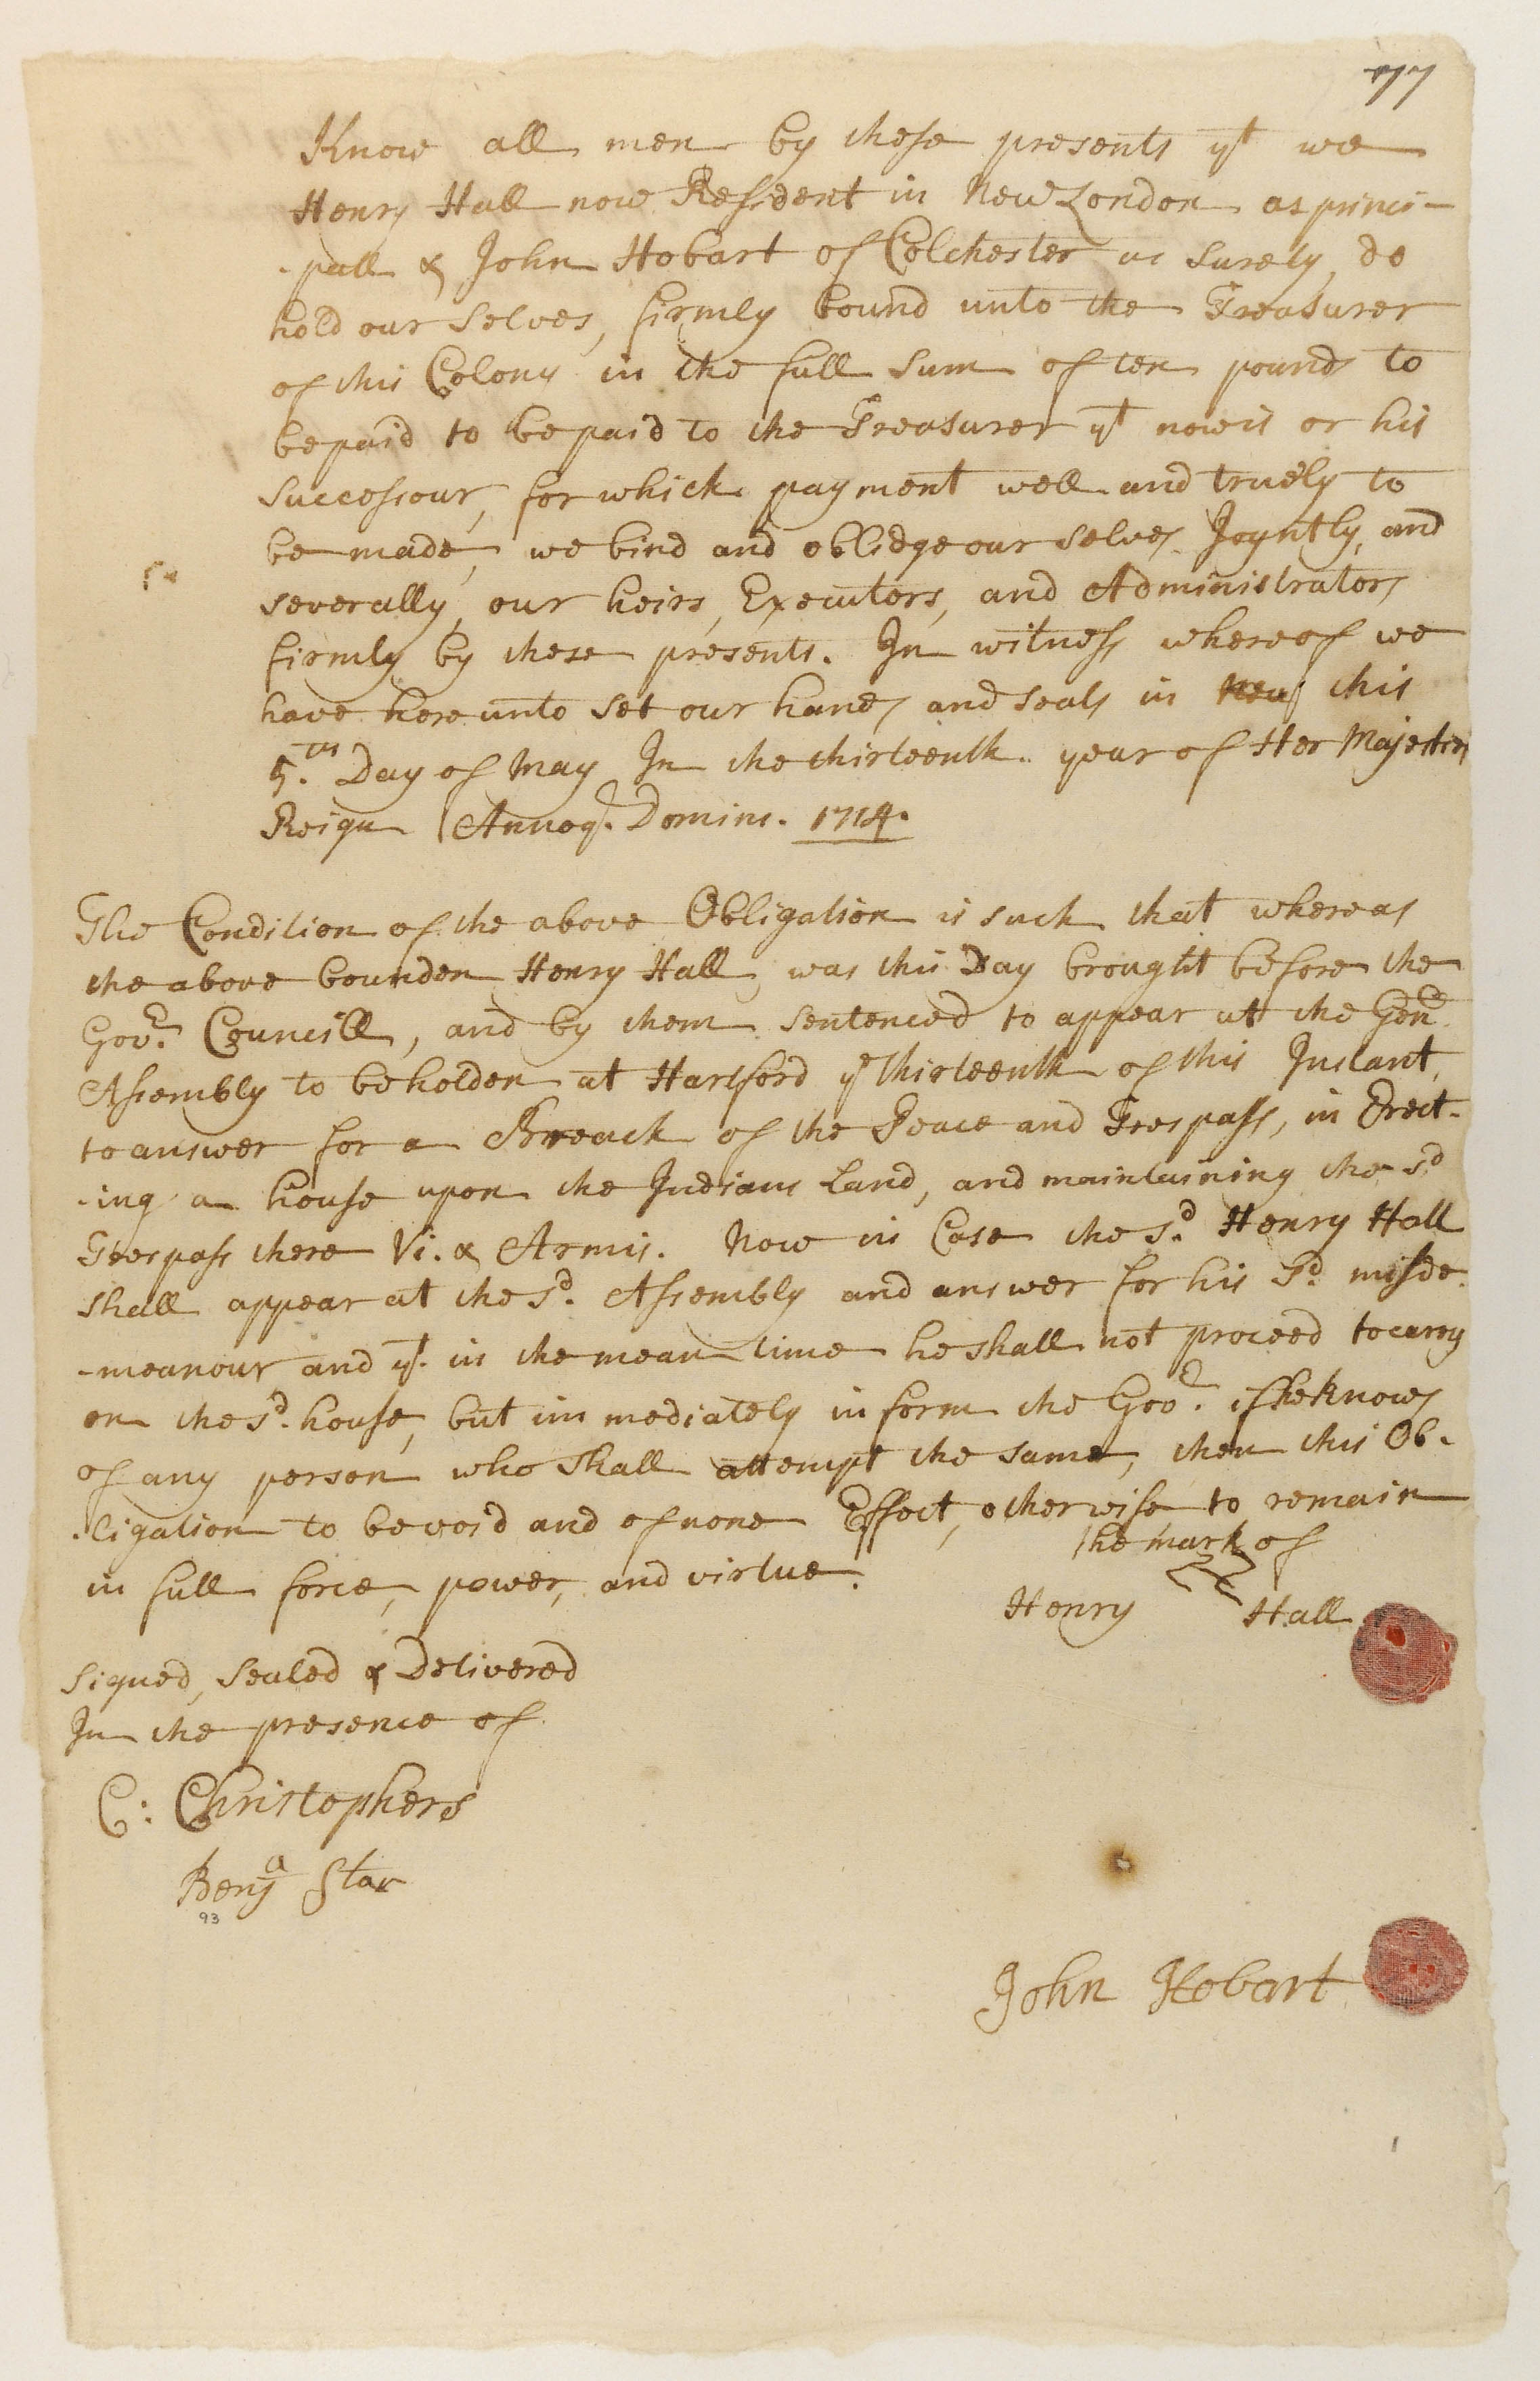 77
Know all men by these presents yt we
Henry Hall now Resident in New London as princi-
-pall & John Hobart of Colchester as surety, do
hold our selves, firmly bound unto the Treasurer
of this Colony in the full sum of ten pounds to
be paid to be paid to the Treasurer yt now is or his
successour, for which payment well and truely to
be made, we bind and oblidge our selves Joyntly, and
severally, our heirs, Executors, and Administrators
firmly by these presents. In witness whereof we
have here unto set our hands and seals in New this
5.th Day of May In the thirteenth year of Her Majesties
Reign Annoq. Domini. 1714.
The Condition of the above Obligation is such that whereas
the above bounden Henry Hall, was this Day brought before the
Govr. Councill, and by them sentenced to appear at the Genll
Assembly to be holden at Hartford ye thirteenth of this Instant,
to answer for a Breach of the Peace and Trespass, in Erect-
-ing a house upon the Indians Land, and maintaining the sd
Trespass there Vi. & Armis. Now in Case the sd. Henry Hall
shall appear at the sd. Assembly and answer for his sd. misde-
-meanour and yt. in the mean time he shall not proceed to carry
on the sd. house, but immediately inform the Govr. if he knows
of any person who shall attempt the same, then this Ob-
-ligation to be void and of none Effect, otherwise to remain
in full force, power, and virtue.
the mark of
Henry Hall
Signed, Sealed & Delivered
In the presence of
C: Christophers
Benja Star
93
John Hobart